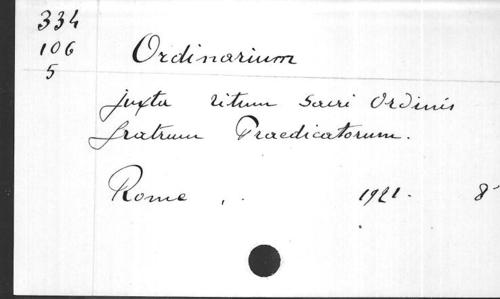 334
106
5
Ordinarium
juxta ritum sacri Ordinis
fratrum Praedicatorum.
Rome . . 1921. 8°